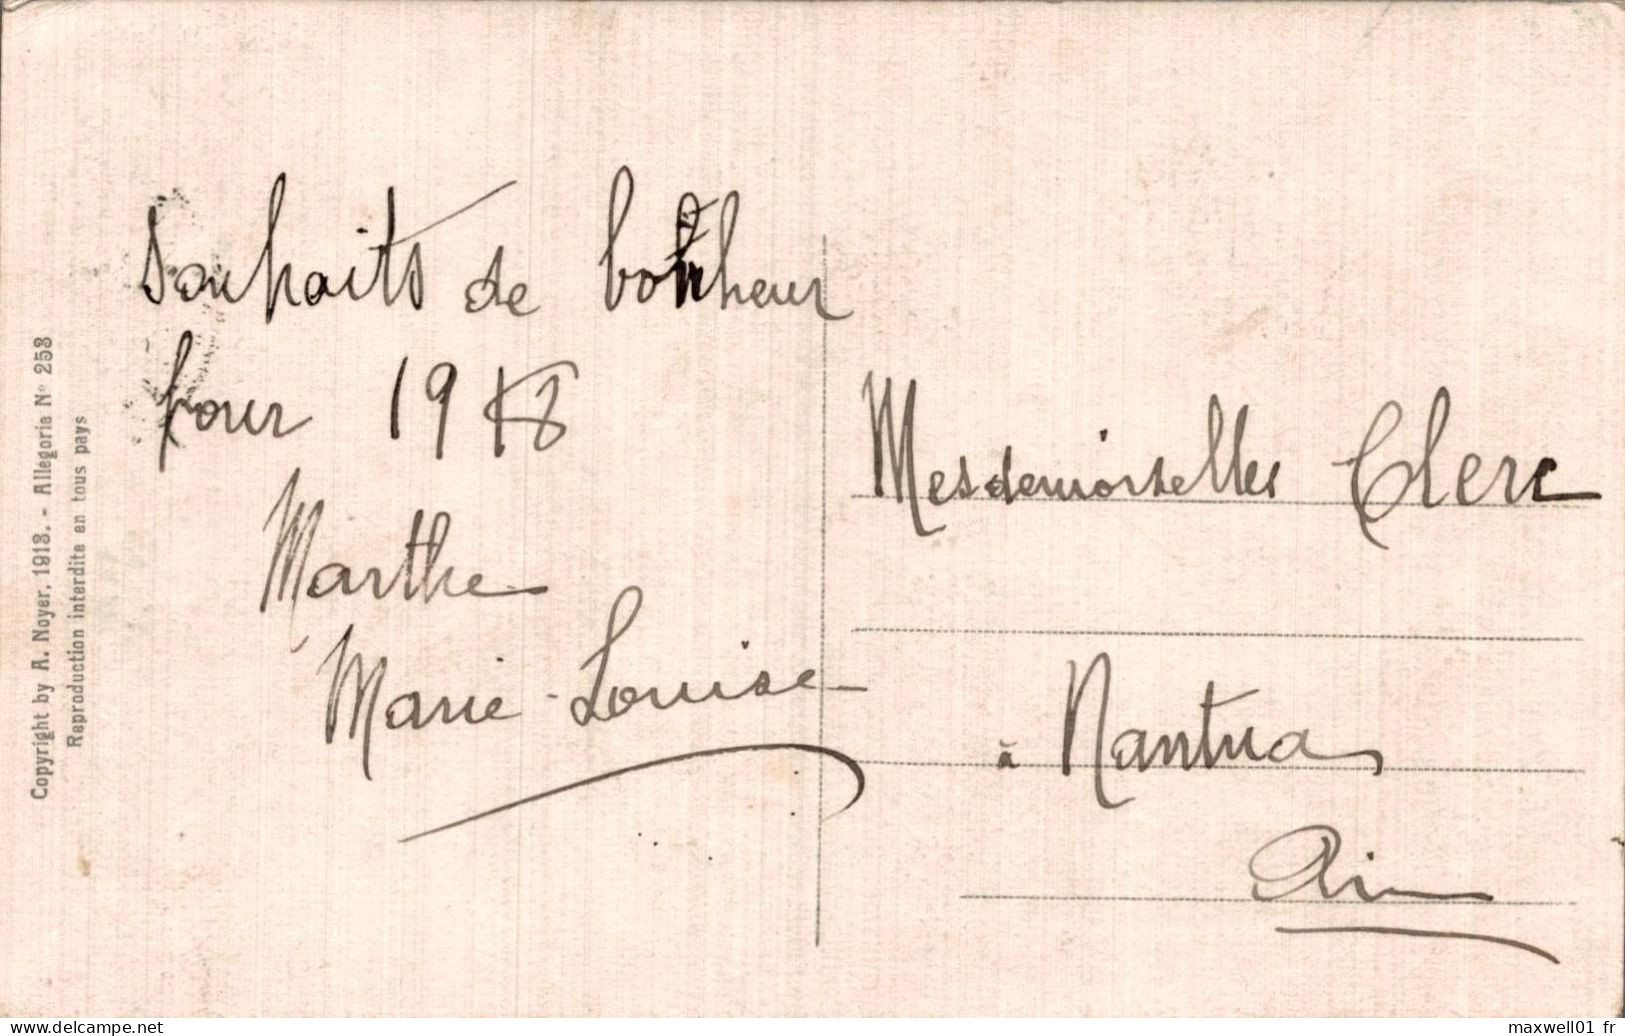 Copyright by A. Noyer, 1918. - Allegoria N° 253
Reproduction interdite en tous pays
Souhaits de bonheur
pour 1918
Marthe
Marie-Louise
Mesdemoiselles Clerc
à Nantua
Ain
maxwell01 fr